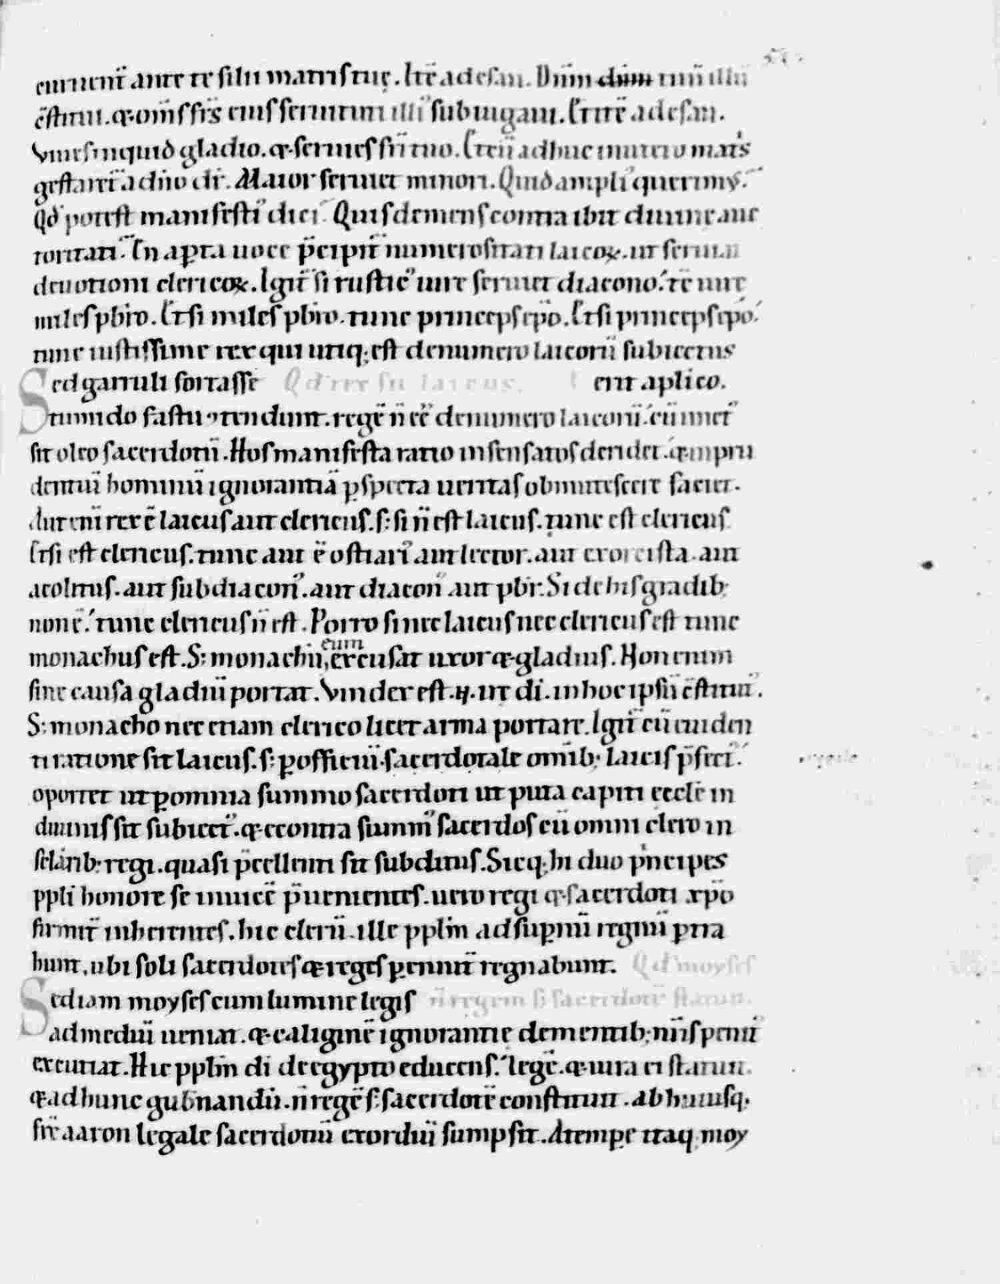 curuent̄ ante te filii matris tuę. Itē ad esau. Dn̄m dūm tuū illū
c̄stitui. ⁊ om̄s fr̄s eius seruituti illi᷒ subiugaui. Et itē ad esau.
Viues inquid gladio. ⁊ seruies fr̄i tuo. Et cū adhuc in utero mat's
gestarēt̄ a dn̄o dr̄. Maior seruiet minori. Quid ampli᷒ querim᷒.
Qd̓ potest manifesti᷒ dici. Quis demens contra ibit diuinę auc
toritati. In aperta uoce p̄cipit̄ numerositati laicoꝝ. ut seruiat
deuotioni clericoꝝ. Igit̄ si rustic᷒ uult seruiet diacono. tē uult
miles pb̄ro. Et si miles pb̄ro. tunc princeps ep̄o. Et si princeps ep̄o.
tunc iustissime rex qui utiq; est de numero laicorū subiectus
Sed garruli fortasse Qd̓ rex sit laicus. erit aplico.
tumido fastu ꝯtendunt. regē n̄ eē de numero laicorū. cū unct᷒
sit oleo sacerdotū. Hos manifesta ratio insensatos deridet. ⁊ inpru
dentiū hominū ignorantiā ꝑspecta ueritas obmutescere faciet.
Aut eni rex ē laicus aut clericus. s; si n̄ est laicus. tunc est clericus
Et si est clericus. tunc aut ē ostiari᷒ aut lector. aut exorcista. aut
acolitus. aut subdiacon᷒. aut diacon᷒ aut pb̄r. Si de his gradib;
non ē. tunc clericus n̄ est. Porro si nec laicus nec clericus est tunc
monachus est. S; monachū, eum excusat uxor ⁊ gladius. Non enim
sine causa gladiū portat. Vindex est .n. ut di. in hoc ipsū c̄stitut᷒.
S; monacho nec etiam clerico licet arma portare. Igit̄ cū euiden
ti ratione sit laicus. s; ꝑ officiū sacerdotale omīb; laicis p̄fert᷒.
oportet ut ꝑ omnia summo sacerdoti ut puta capiti eccłe in
diuinis sit subiect᷒. ⁊ econtra summ᷒ sacerdos cū omni clero in
sc̄larib; regi. quasi p̄cellenti sit subditus. Sicq; hi duo p'ncipes
ppłi honore se inuicē p̄uenientes. uero regi ⁊ sacerdoti xp̄o
firmit̄ inherentes. hic clerū. ille ppłm ad supnū regnū ꝑtra
hunt. ubi soli sacerdotes ⁊ reges ꝑennit̄ regnabunt. Qd̓ moyses
Sed iam moyses cum lumine legis n̄ regem s; sacerdotē statuit.
ad mediū ueniat. ⁊ caliginē ignorantie de mentib; nr̄is penit᷒
excutiat. Hic ppłm di de egypto educens. legē. ⁊ iura ei statuit.
⁊ ad hunc gubnandū. n̄ regē s; sacerdotē constituit. ab huiusq;
fr̄e aaron legale sacerdotiū exordiū sumpsit. A tempe itaq; moy